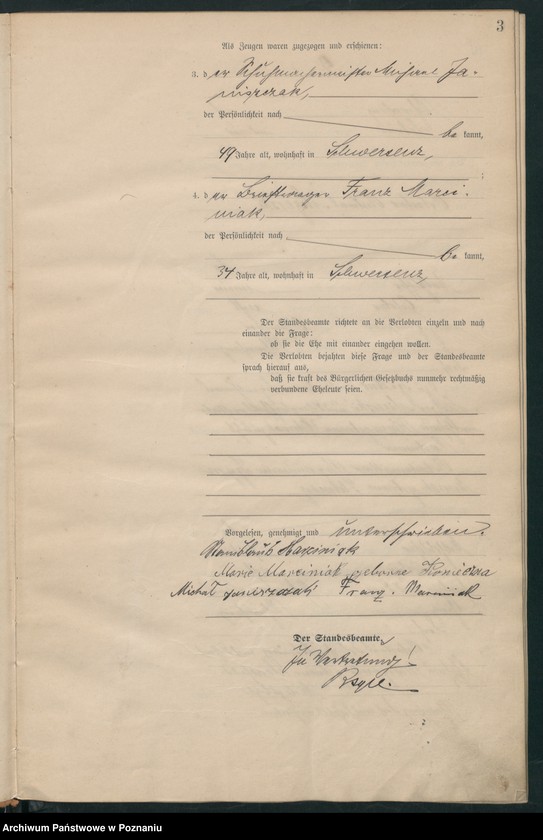 3
Als Zeugen waren zugezogen und erschienen:
3. der Schuhmachermeister Michael Ja-
niszczak,
der Persönlichkeit nach
bekannt,
49 Jahre alt, wohnhaft in Schwersenz,
;
4. der Briefträger Franz Marci-
niak,
der Persönlichkeit nach
bekannt,
34 Jahre alt, wohnhaft in Schwersenz,
Der Standesbeamte richtete an die Verlobten einzeln und nach
einander die Frage:
ob sie die Ehe mit einander eingehen wollen.
Die Verlobten bejahten diese Frage und der Standesbeamte
sprach hierauf aus,
daß sie kraft des Bürgerlichen Gesetzbuchs nunmehr rechtmäßig
verbundene Eheleute seien.
Vorgelesen, genehmigt und unterschrieben.
Stanislaus Marciniak
Marie Marciniak geborene Konieczna
Michał Franz Marciniak
Der Standesbeamte,
In Vertretung!
Archiwum Państwowe w Poznaniu